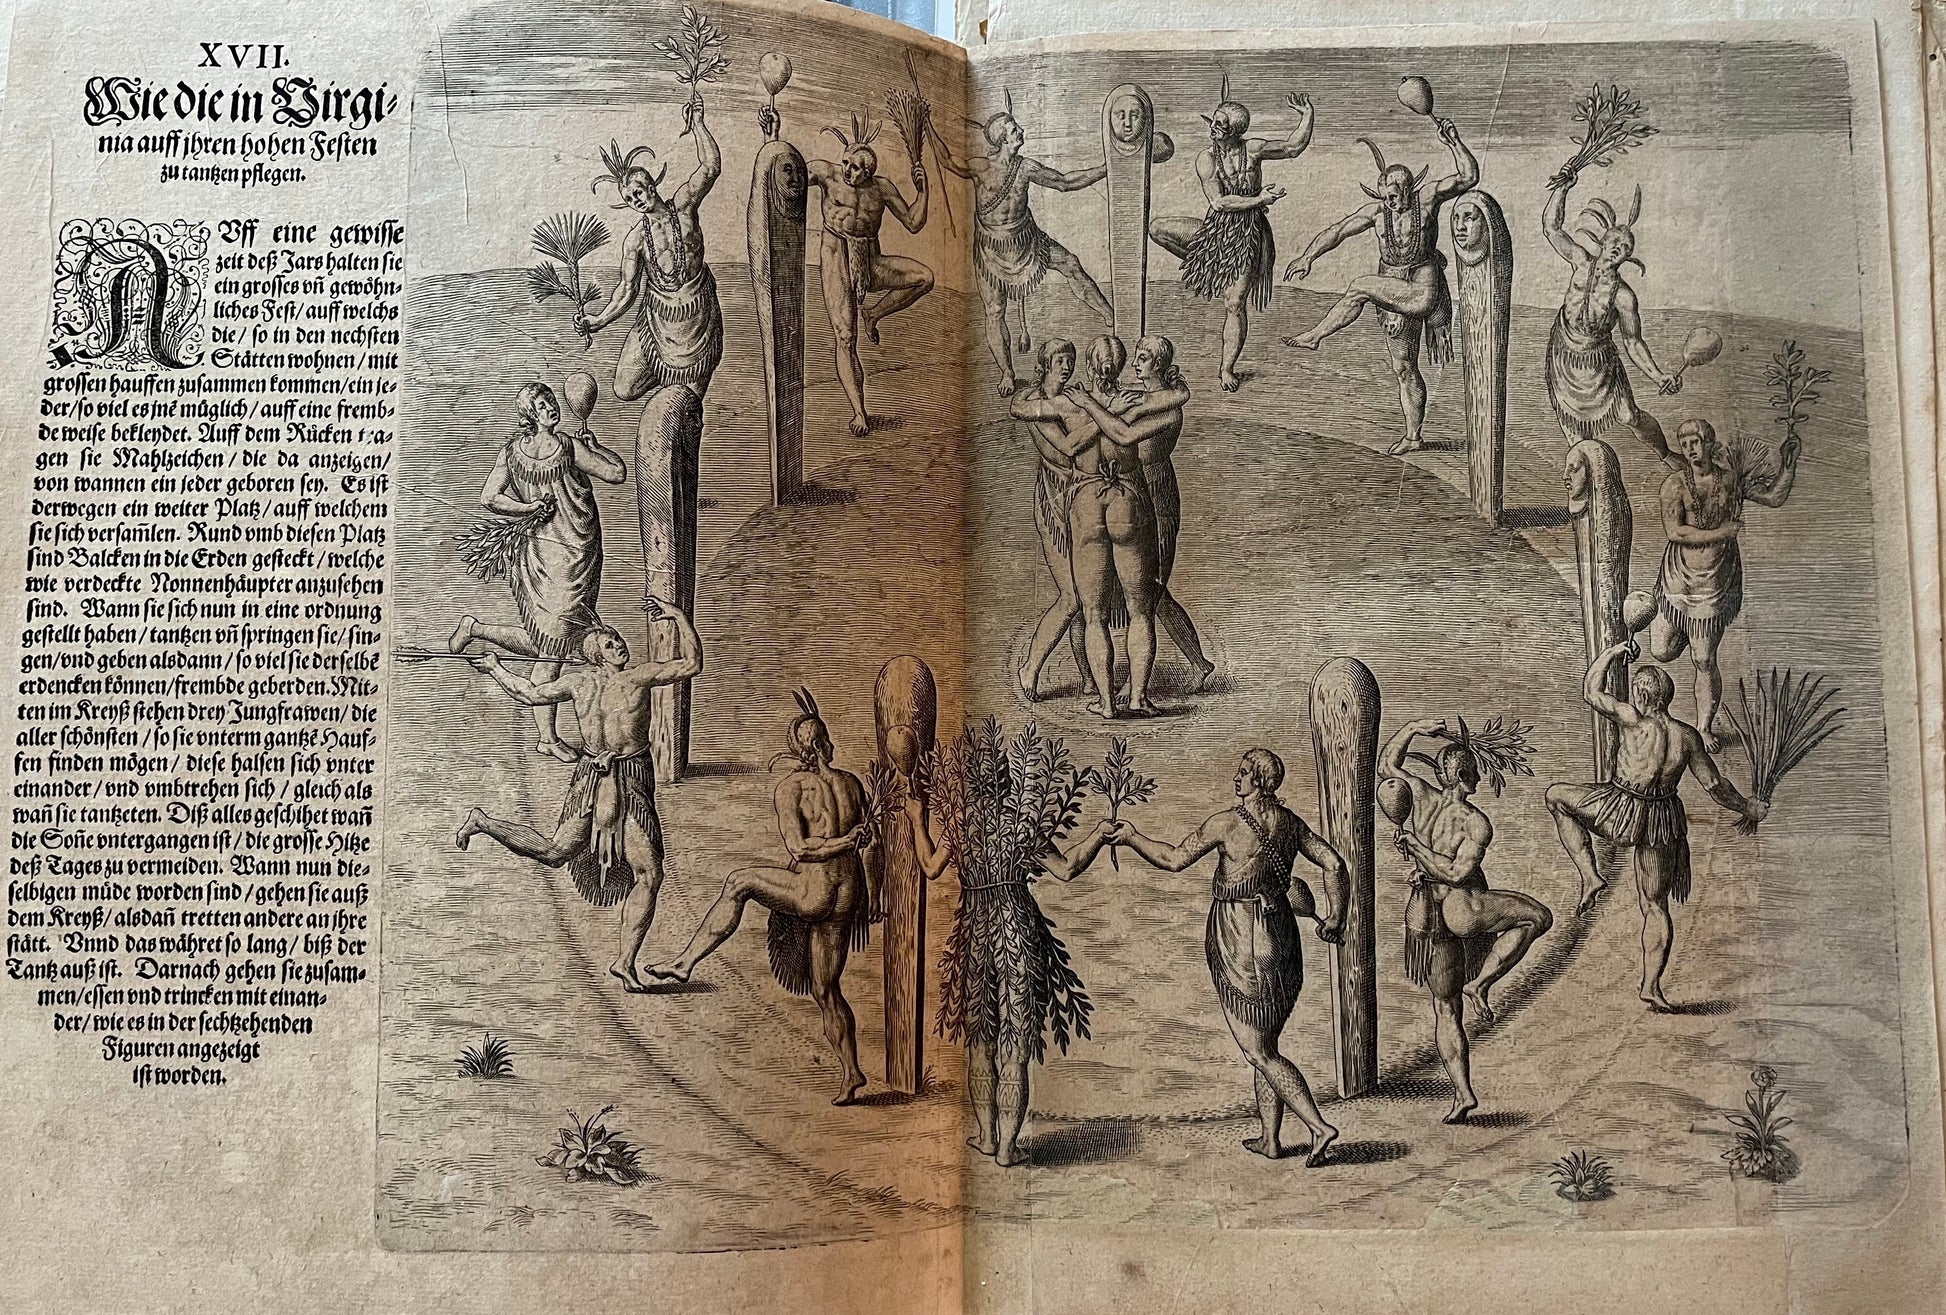 XVII.
Wie die in Virgi-
nia auff jhren hohen Festen
zu tantzen pflegen.
AUff eine gewisse
zeit deß Jars halten sie
ein grosses vñ gewöhn-
liches Fest/ auff welchs
die/ so in den nechsten
Stätten wohnen/ mit
grossen hauffen zusammen kommen/ ein je-
der/ so viel es jnē müglich/ auff eine fremb-
de weise bekleydet. Auff dem Rücken tra-
gen sie Mahlzeichen/ die da anzeigen/
von wannen ein jeder geboren sey. Es ist
derwegen ein weiter Platz/ auff welchem
sie sich versam̃len. Rund vmb diesen Platz
sind Balcken in die Erden gesteckt/ welche
wie verdeckte Nonnenhäupter anzusehen
sind. Wann sie sich nun in eine ordnung
gestellt haben/ tantzen vñ springen sie/ sin-
gen/ vnd geben alsdann/ so viel sie derselbē
erdencken können/ frembde geberden. Mit-
ten im Kreyß stehen drey Jungfrawen/ die
aller schönsten/ so sie vnterm gantzē Hauf-
fen finden mögen/ diese halsen sich vnter
einander/ vnd vmbtrehen sich/ gleich als
wañ sie tantzeten. Diß alles geschihet wañ
die Soñe vntergangen ist/ die grosse Hitze
deß Tages zu vermeiden. Wann nun die-
selbigen müde worden sind/ gehen sie auß
dem Kreyß/ alsdañ tretten andere an jhre
stätt. Vnnd das währet so lang/ biß der
Tantz auß ist. Darnach gehen sie zusam-
men/ essen vnd trincken mit einan-
der/ wie es in der sechtzehenden
Figuren angezeigt
ist worden.